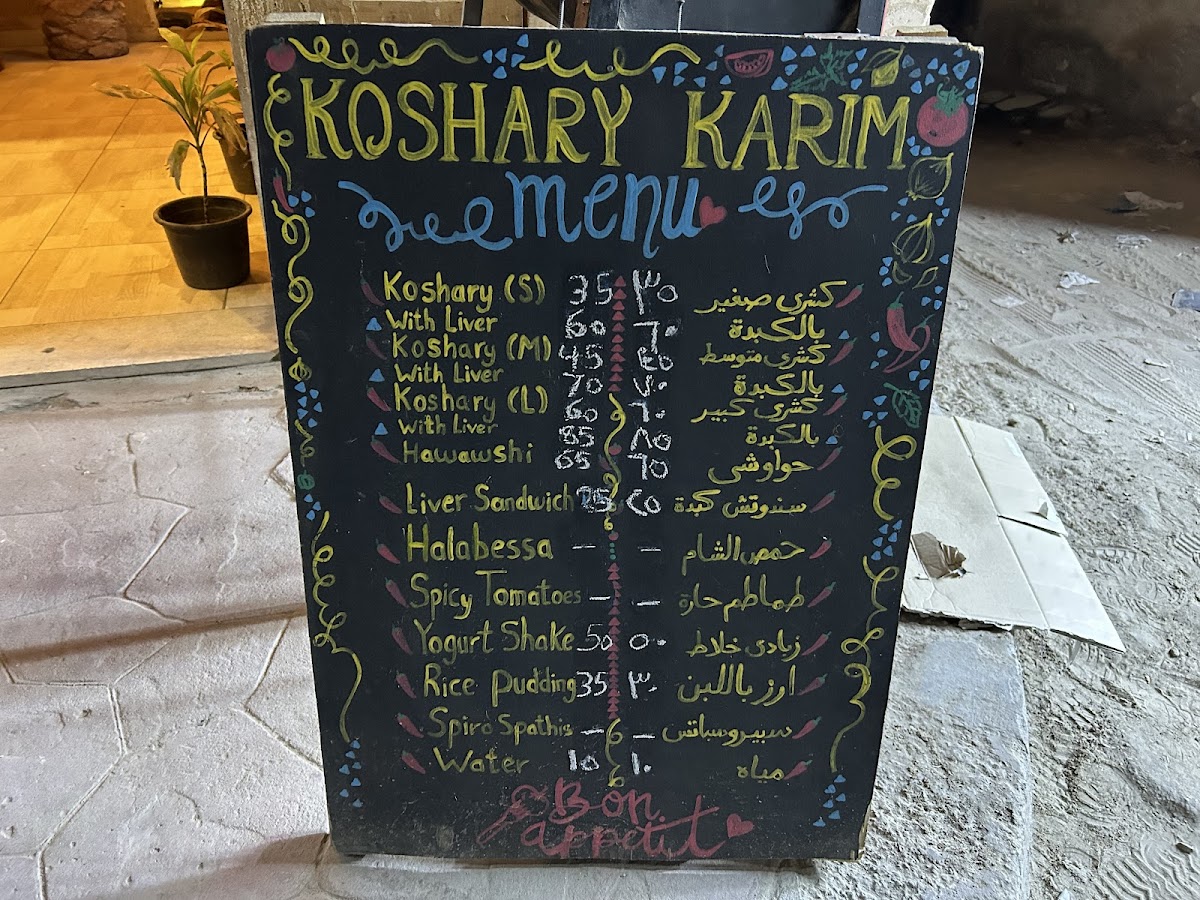 KOSHARY KARIM
menu
Koshary (S) 35 ٣٥ كشرى صغير
With Liver 60 ٦٠ بالكبدة
Koshary (M) 45 ٤٥ كشرى متوسط
With Liver 70 ٧٠ بالكبدة
Koshary (L) 60 ٦٠ كشرى كبير
With Liver 85 ٨٥ بالكبدة
Hawawshi 65 ٦٥ حواوشى
Liver Sandwich 25 ٢٥ سندوتش كبدة
Halabessa – – حمص الشام
Spicy Tomatoes – – طماطم حارة
Yogurt Shake 50 ٥٠ زبادى خلاط
Rice pudding 35 ٣٠ ارز باللبن
Spiro Spathis – – سبيروسباتس
Water 10 ١٠ مياه
Bon
appetit